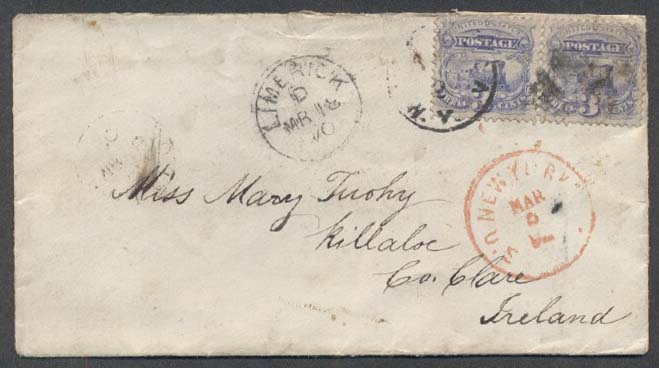 UNITED STATES UNITED STATES
POSTAGE POSTAGE
3 CENTS
LIMERICK
D
MR 18
70
NEW YORK
MAR
5
Miss Mary Tuohy
Killaloe
Co. Clare
Ireland